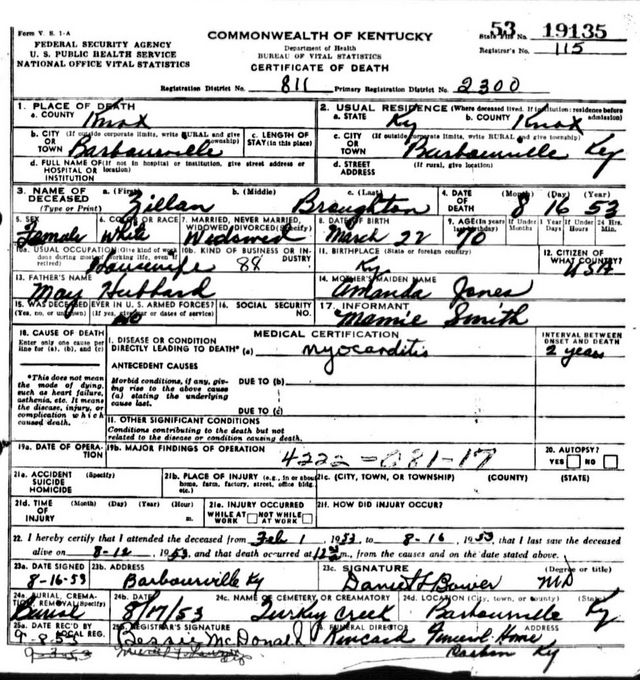 Form V. S. 1-A
FEDERAL SECURITY AGENCY
U. S. PUBLIC HEALTH SERVICE
NATIONAL OFFICE VITAL STATISTICS
COMMONWEALTH OF KENTUCKY
Department of Health
BUREAU OF VITAL STATISTICS
CERTIFICATE OF DEATH
53 19135
Registrar's No. 115
Registration District No. 811 Primary Registration District No. 2300
1. PLACE OF DEATH
a. COUNTY Knox
2. USUAL RESIDENCE (Where deceased lived. If institution: residence before admission)
a. STATE Ky b. COUNTY Knox
b. CITY (If outside corporate limits, write RURAL and give township) OR TOWN Barbourville
c. LENGTH OF STAY (in this place)
c. CITY (If outside corporate limits, write RURAL and give township) OR TOWN Barbourville Ky
d. FULL NAME OF (If not in hospital or institution, give street address or location) HOSPITAL OR INSTITUTION
d. STREET ADDRESS (If rural, give location)
3. NAME OF DECEASED (Type or Print) a. (First) Zillan b. (Middle) c. (Last) Broughton
4. DATE OF DEATH (Month) (Day) (Year) 8 16 53
5. SEX Female
6. COLOR OR RACE White
7. MARRIED, NEVER MARRIED, WIDOWED, DIVORCED (Specify) Widowed
8. DATE OF BIRTH March 22
9. AGE (In years last birthday) 70 If Under 1 Year Months Days If Under 24 Hrs. Hours Min.
10a. USUAL OCCUPATION (Give kind of work done during most of working life, even if retired) Housewife
10b. KIND OF BUSINESS OR INDUSTRY 88
11. BIRTHPLACE (State or foreign country) Ky
12. CITIZEN OF WHAT COUNTRY? USA
13. FATHER'S NAME May Hubbard
14. MOTHER'S MAIDEN NAME Amanda Jones
15. WAS DECEASED EVER IN U. S. ARMED FORCES? (Yes, no, or unknown) (If yes, give war or dates of service) no
16. SOCIAL SECURITY NO.
17. INFORMANT Mamie Smith
18. CAUSE OF DEATH
Enter only one cause per line for (a), (b), and (c)
MEDICAL CERTIFICATION
INTERVAL BETWEEN ONSET AND DEATH
I. DISEASE OR CONDITION DIRECTLY LEADING TO DEATH* (a) myocarditis 2 years
*This does not mean the mode of dying, such as heart failure, asthenia, etc. It means the disease, injury, or complication which caused death.
ANTECEDENT CAUSES
Morbid conditions, if any, giving rise to the above cause (a) stating the underlying cause last.
DUE TO (b)
DUE TO (c)
II. OTHER SIGNIFICANT CONDITIONS
Conditions contributing to the death but not related to the disease or condition causing death.
19a. DATE OF OPERATION
19b. MAJOR FINDINGS OF OPERATION
4222 081-17
20. AUTOPSY? YES NO
21a. ACCIDENT SUICIDE HOMICIDE (Specify)
21b. PLACE OF INJURY (e.g., in or about home, farm, factory, street, office bldg., etc.)
21c. (CITY, TOWN, OR TOWNSHIP) (COUNTY) (STATE)
21d. TIME OF INJURY (Month) (Day) (Year) (Hour) m.
21e. INJURY OCCURRED WHILE AT WORK NOT WHILE AT WORK
21f. HOW DID INJURY OCCUR?
22. I hereby certify that I attended the deceased from Feb 1, 1953, to 8-16, 1953, that I last saw the deceased
alive on 8-12, 1953, and that death occurred at m., from the causes and on the date stated above.
23a. DATE SIGNED 8-16-53
23b. ADDRESS Barbourville Ky
23c. SIGNATURE (Degree or title) MD
24a. BURIAL, CREMATION, REMOVAL (Specify) Burial
24b. DATE 8/17/53
24c. NAME OF CEMETERY OR CREMATORY Turkey Creek
24d. LOCATION (City, town, or county) (State) Barbourville Ky
25a. DATE REC'D BY LOCAL REG. 9-8-53
25b. REGISTRAR'S SIGNATURE Bessie McDonald
26. FUNERAL DIRECTOR Funeral Home
Ky